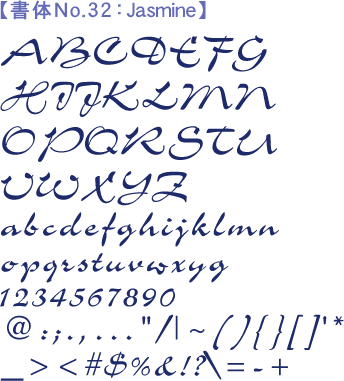 【書体No.32：Jasmine】
ABCDEFG
HIJKLMN
OPQRSTU
VWXYZ
abcdefghijklmn
opqrstuvwxyg
1234567890
@:;.,..."/|~(){}[]'*
_><#$%&!?\=-+